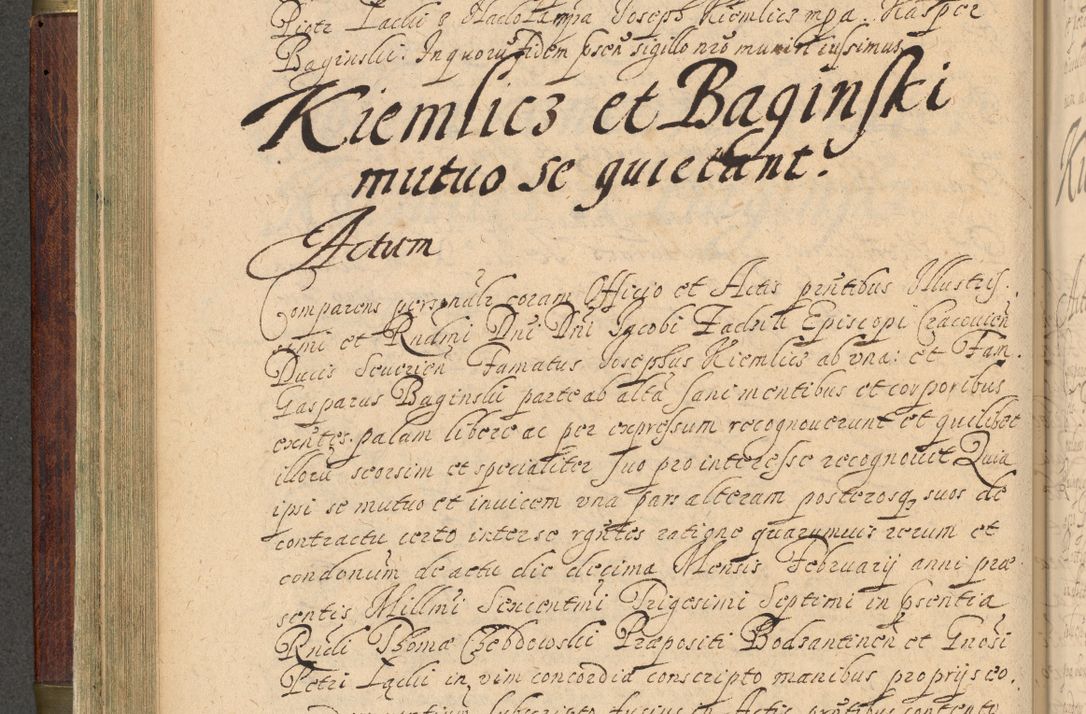 Piotr Lacki Joseph Kiemlicz mpa. Kasper
Baginski. In quoru fidem psen sigillo nro muniri iussimus
Kiemlicz et Baginski
mutuo se quietant.
Actum
Comparens personalr coram Officio et Actis pntibus Illustris.
simi et Rndmi Dni Dni Jacobi Zadzik Episcopi Cracovien
Ducis Severien Famatus Josephus Kiemlicz ab una: et Fam.
Gasparus Baginski parte ab alta sani mentibus et corporibus
exntes. palam libere ac per expressum recognoverunt et quilibet
illoru seorsim et specialiter suo pro interesse recognovit Quia
ipsi se mutuo et invicem una pars alteram posterosq suos de
contractu certo inter se ratione quarumvis rerum et
de actu die decima Mensis Februarij anni præ
sentis Millmi Sexcentmi Trigesimi Septimi in psentia
Rndi Thomæ Chebdowski Præpositi Bodzantinen et Gnosi
Petri Lacki in vim concordia conscripto manibus proprijs eo.
subscripto Actis pntibus contento